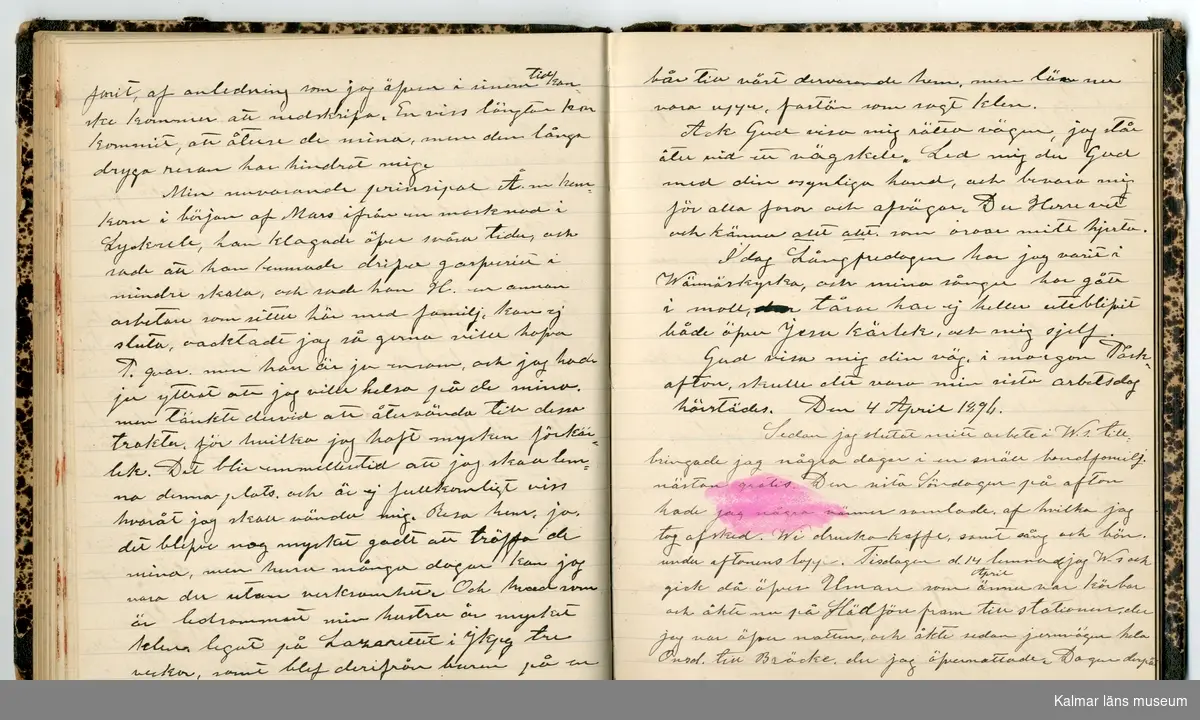 farit, af anledning som jag äfven i inom tid/kan-
ske kommer att nedskrifva. En viss längtan har
kommit, att återse de mina, men den långa
dryga resan har hindrat mig.
Min nuvarande prinsipal Å. m hem-
kom i början af Mars ifrån en marknad i
Lyckcele, han klagade öfver svåra tider, och
sade att han ämnade drifva garfveriet i
mindre skala, och sade han H. en annan
arbetare som sitter här med familj, kan ej
sluta, vacktade jag så gerna ville hafva
T. qvar. men han är ju ensam, och jag hade
ju yttrat att jag ville helsa på de mina.
men tänkte dervid att återvända till dessa
trakter, för hvilka jag haft mycken förkär-
lek. Det blir emmellertid att jag skall lem-
na denna plats, och är ej fullkomligt viss
hvaråt jag skall vända mig. Resa hem, ja.
det blefve nog mycket godt att träffa de
mina, men huru många dagar kan jag
vara der utan verksamhet. Och hvad som
är ledsammast min hustru är mycket
klen. legat på Lazarettet i Jkpg tre
veckor, samt blef derifrån buren på en
bår till vårt dervarande hem, men lär nu
vara uppe, fastän som sagt klen.
Ack Gud visa mig rätta vägen, jag står
åter vid en vägskele. Led mig du Gud
med din osynliga hand, och bevara mig
för alla faror och afvägar. Du Herre vet
och känner allt allt, som oroar mitt hjerta.
I dag Långfredagen har jag varit i
Wännäskyrka, och mina sånger har gått
i moll, tårar har ej heller uteblifvit
både öfver Jesu kärlek, och mig sjelf.
Gud visa mig din väg, i morgon Påsk-
afton, skulle det vara min sista arbetsdag
härstädes. Den 4 April 1896.
Sedan jag slutat mitt arbete i W.s. till-
bringade jag några dagar i en snäll bondfamilj.
nästan gratis. Den sista Söndagen på afton
hade jag några vänner samlade, af hvilka jag
tog afsked. Wi drucko kaffe, samt sång och bön.
under aftonens lopp. Tisdagen d. 14 April lemnade jag W.s och
gick då öfver Uman som ännu var körbar
och åkte nu på Slädföre fram till stationen, der
jag var öfver natten, och åkte sedan jernvägen hela
Onsd. till Bräcke. der jag öfvernattade. Dagen derpå
Kalmar läns museum